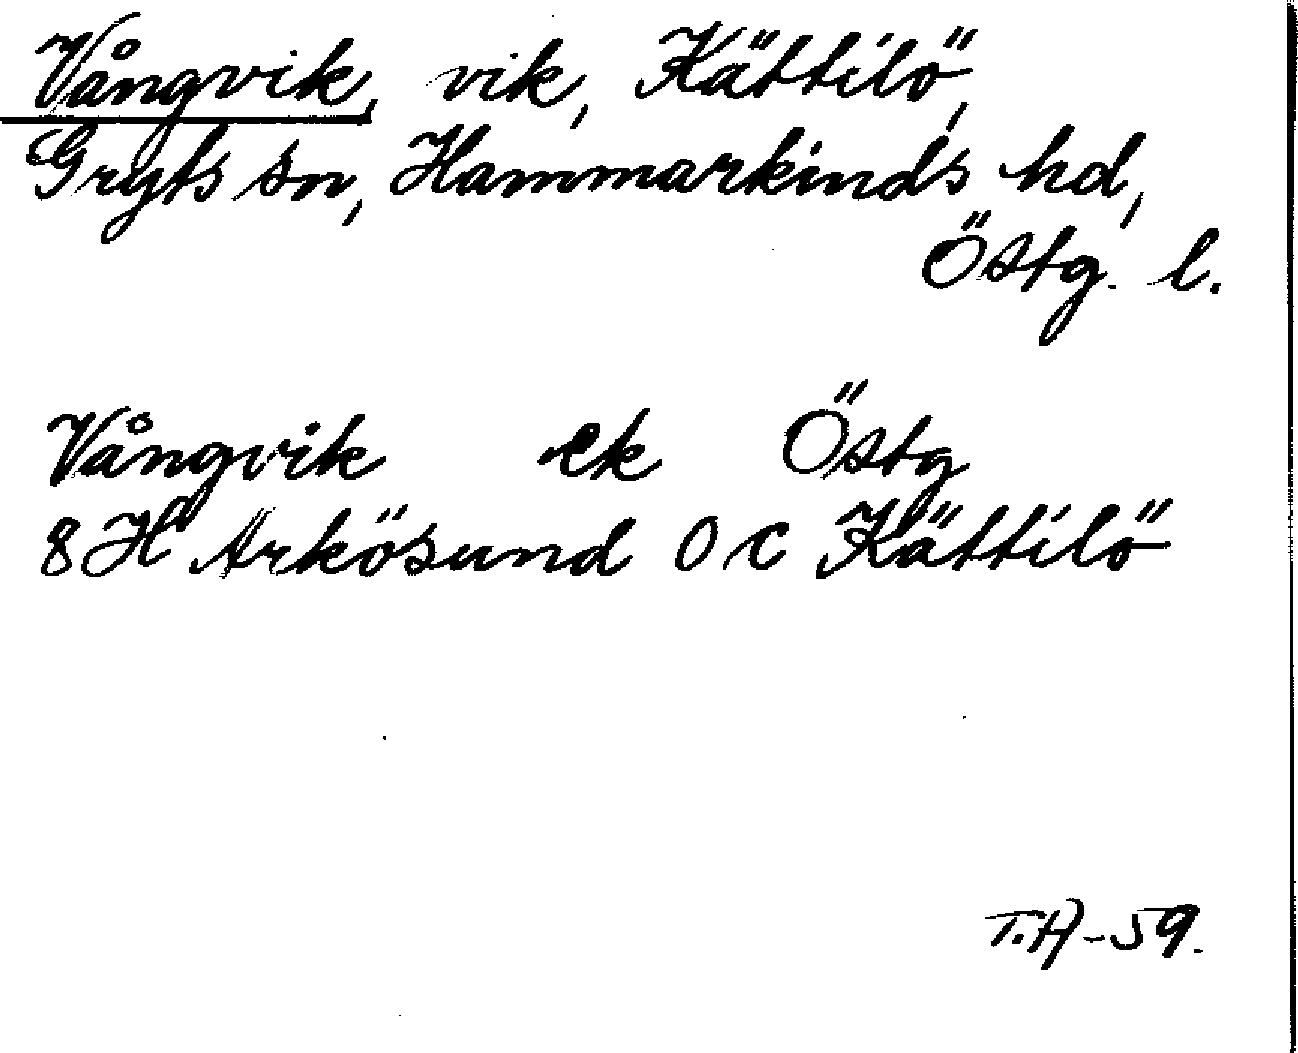 Vångvik, vik, Kättilö,
Gryts sn, Hammarkinds hd,
Östg. l.
Vångvik ek Östg
8 H Arkösund O C Kättilö
T.H-59.